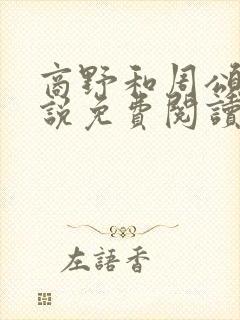 商野和周頌
說免費閱讀
左語香